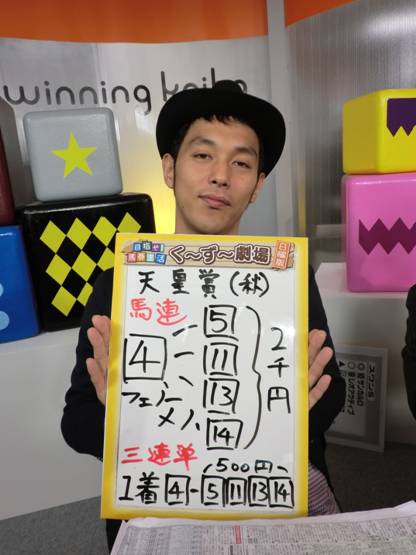 winning keiba
目指せ!
馬券生活
く〜ず〜劇場
日曜版
天皇賞(秋)
馬連
4
フェノーメノ
5
11
13
14
2千円
三連単
500円
1着 4-5 11 13 14